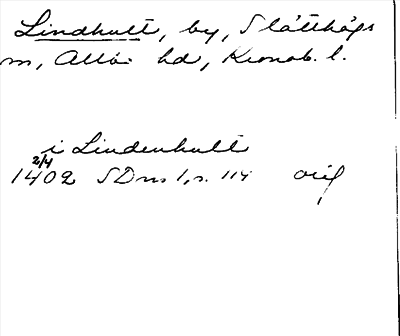 Lindhult, by, Slätthögs
sn, Allbo hd, Kronob. l.
i Lindenhult
2/4
1402 SDns 1, s. 114 orig